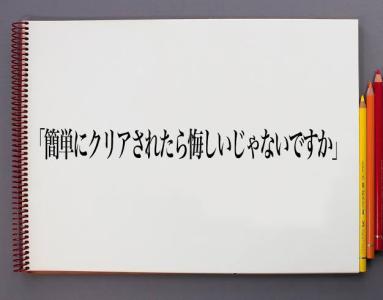 「簡単にクリアされたら悔しいじゃないですか」